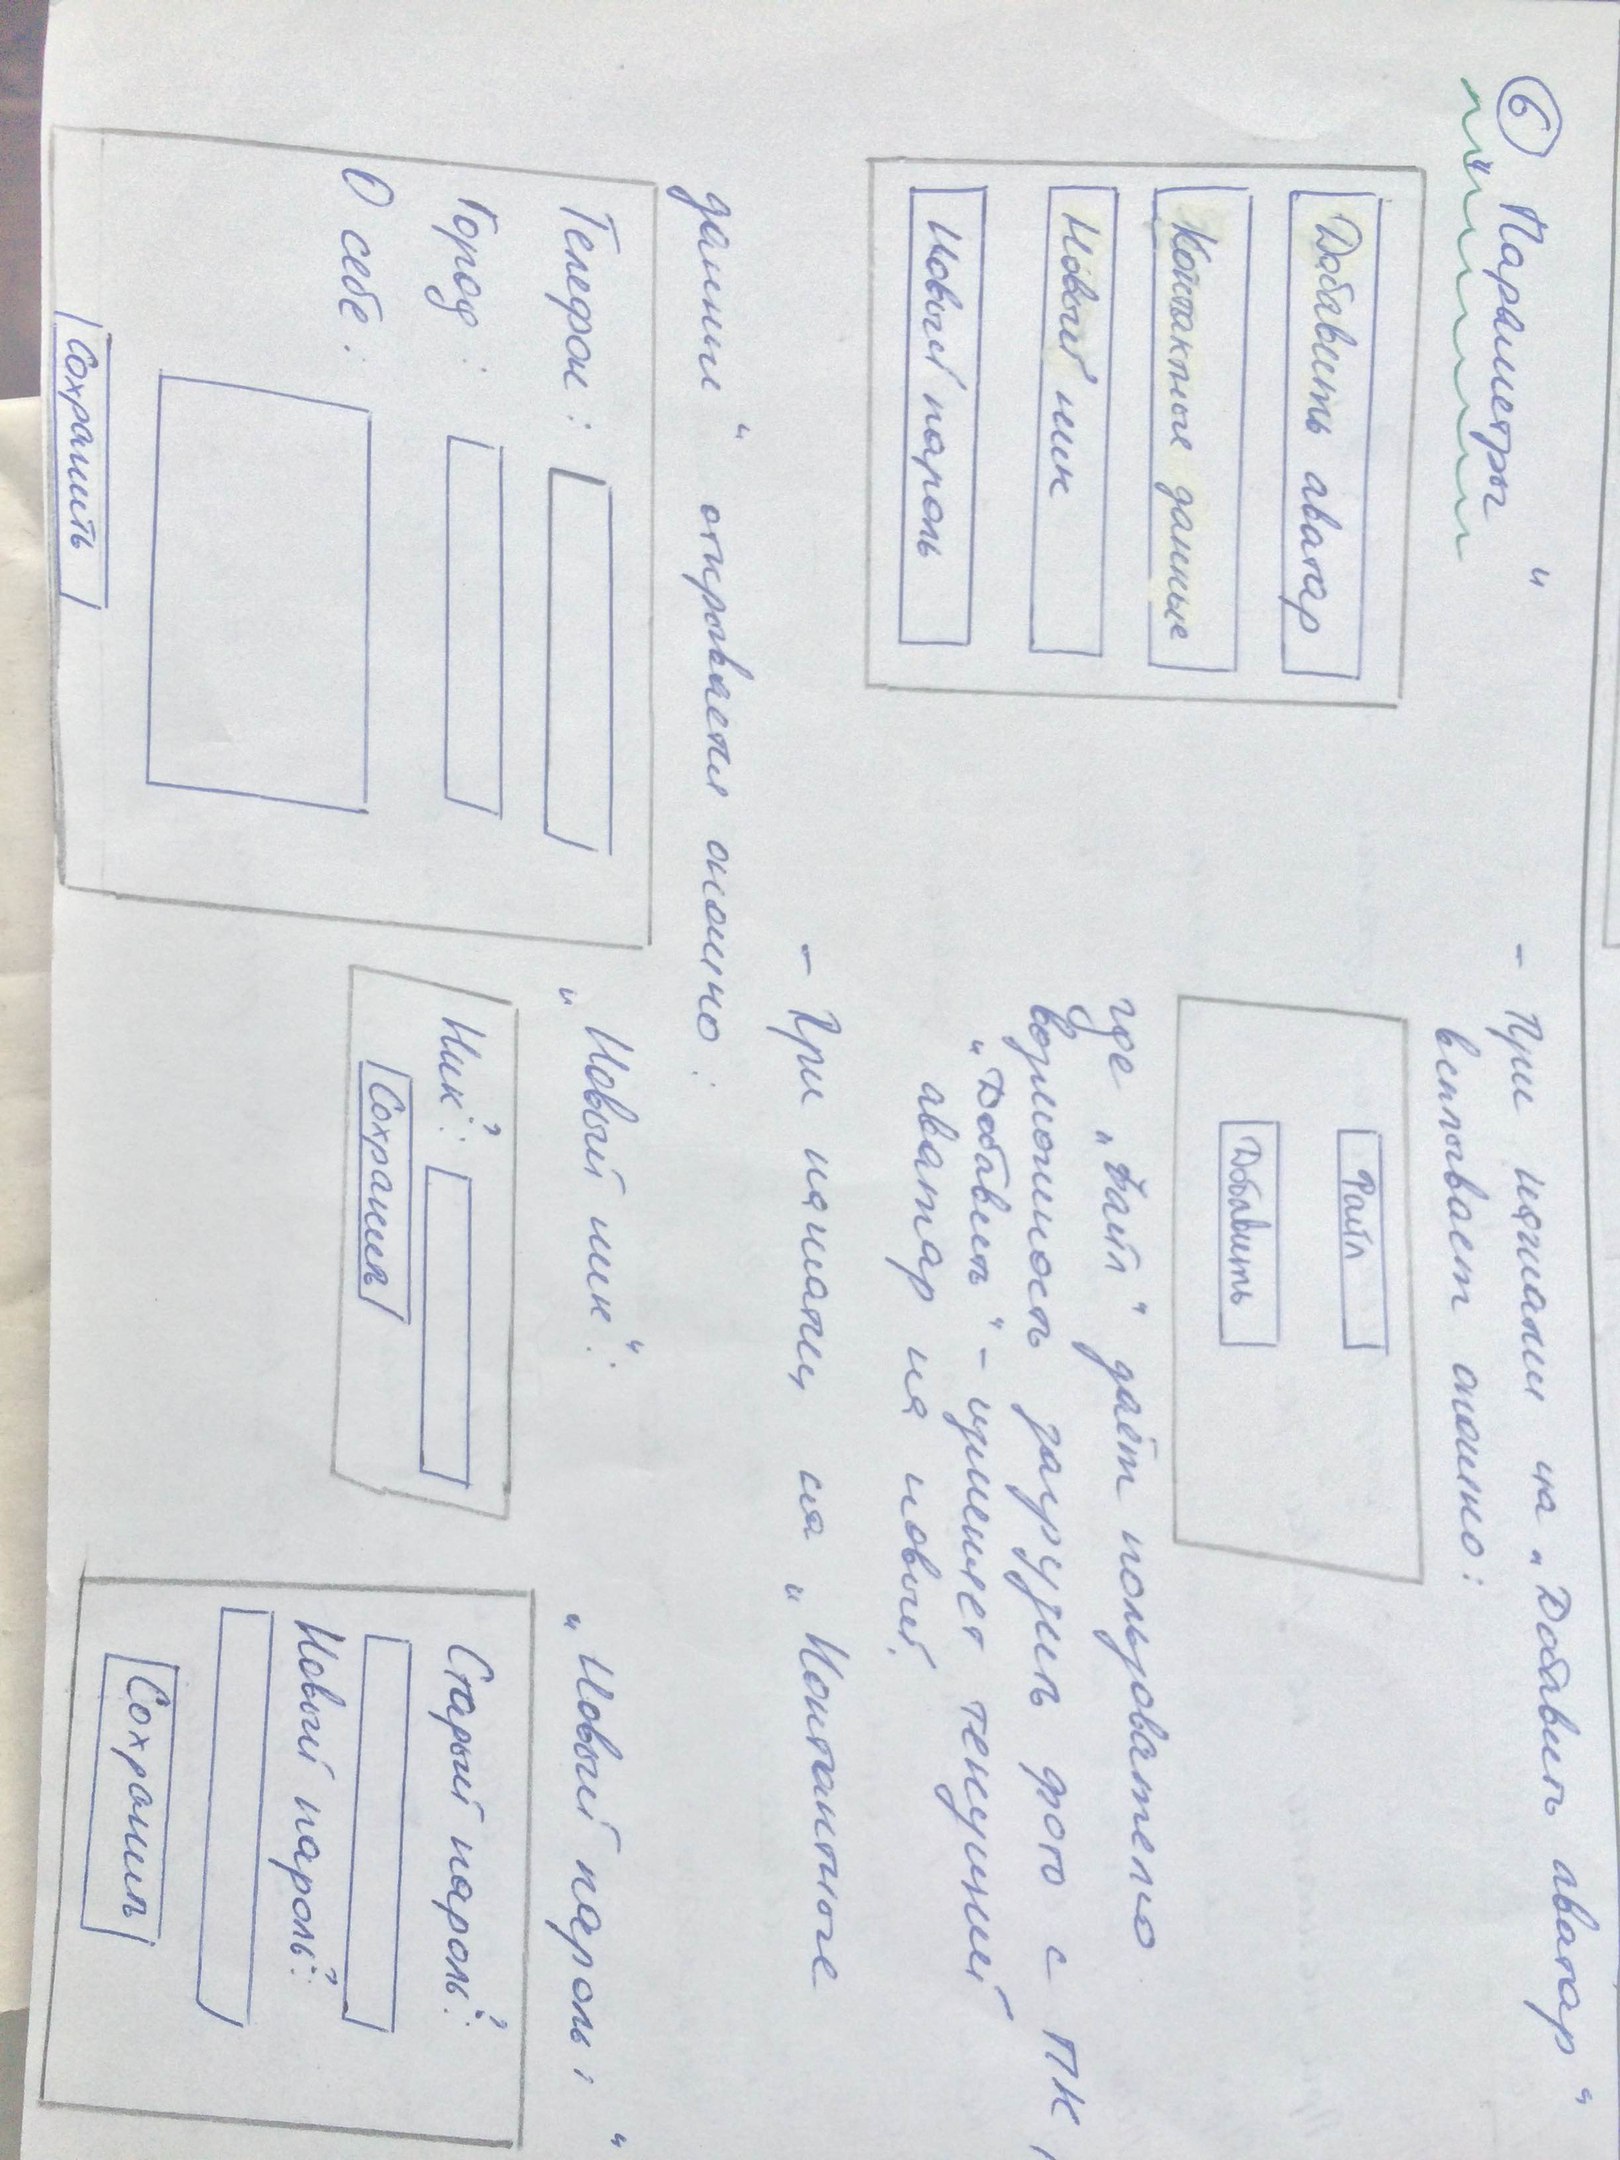 6 „Параметры“
Добавить аватар
Контактные данные
Новый ник
Новый пароль
- При нажатии на „Добавить аватар“
всплывает окошко:
Файл
Добавить
где „Файл“ даёт пользователю
возможность загрузить фото с ПК,
„Добавить“ - изменяет текущий
аватар на новый.
- При нажатии на „Контактные
данные“ открывается окошко:
Телефон:
Город:
О себе:
Сохранить
„Новый ник“:
Ник:
Сохранить
„Новый пароль“
Старый пароль:
Новый пароль:
Сохранить